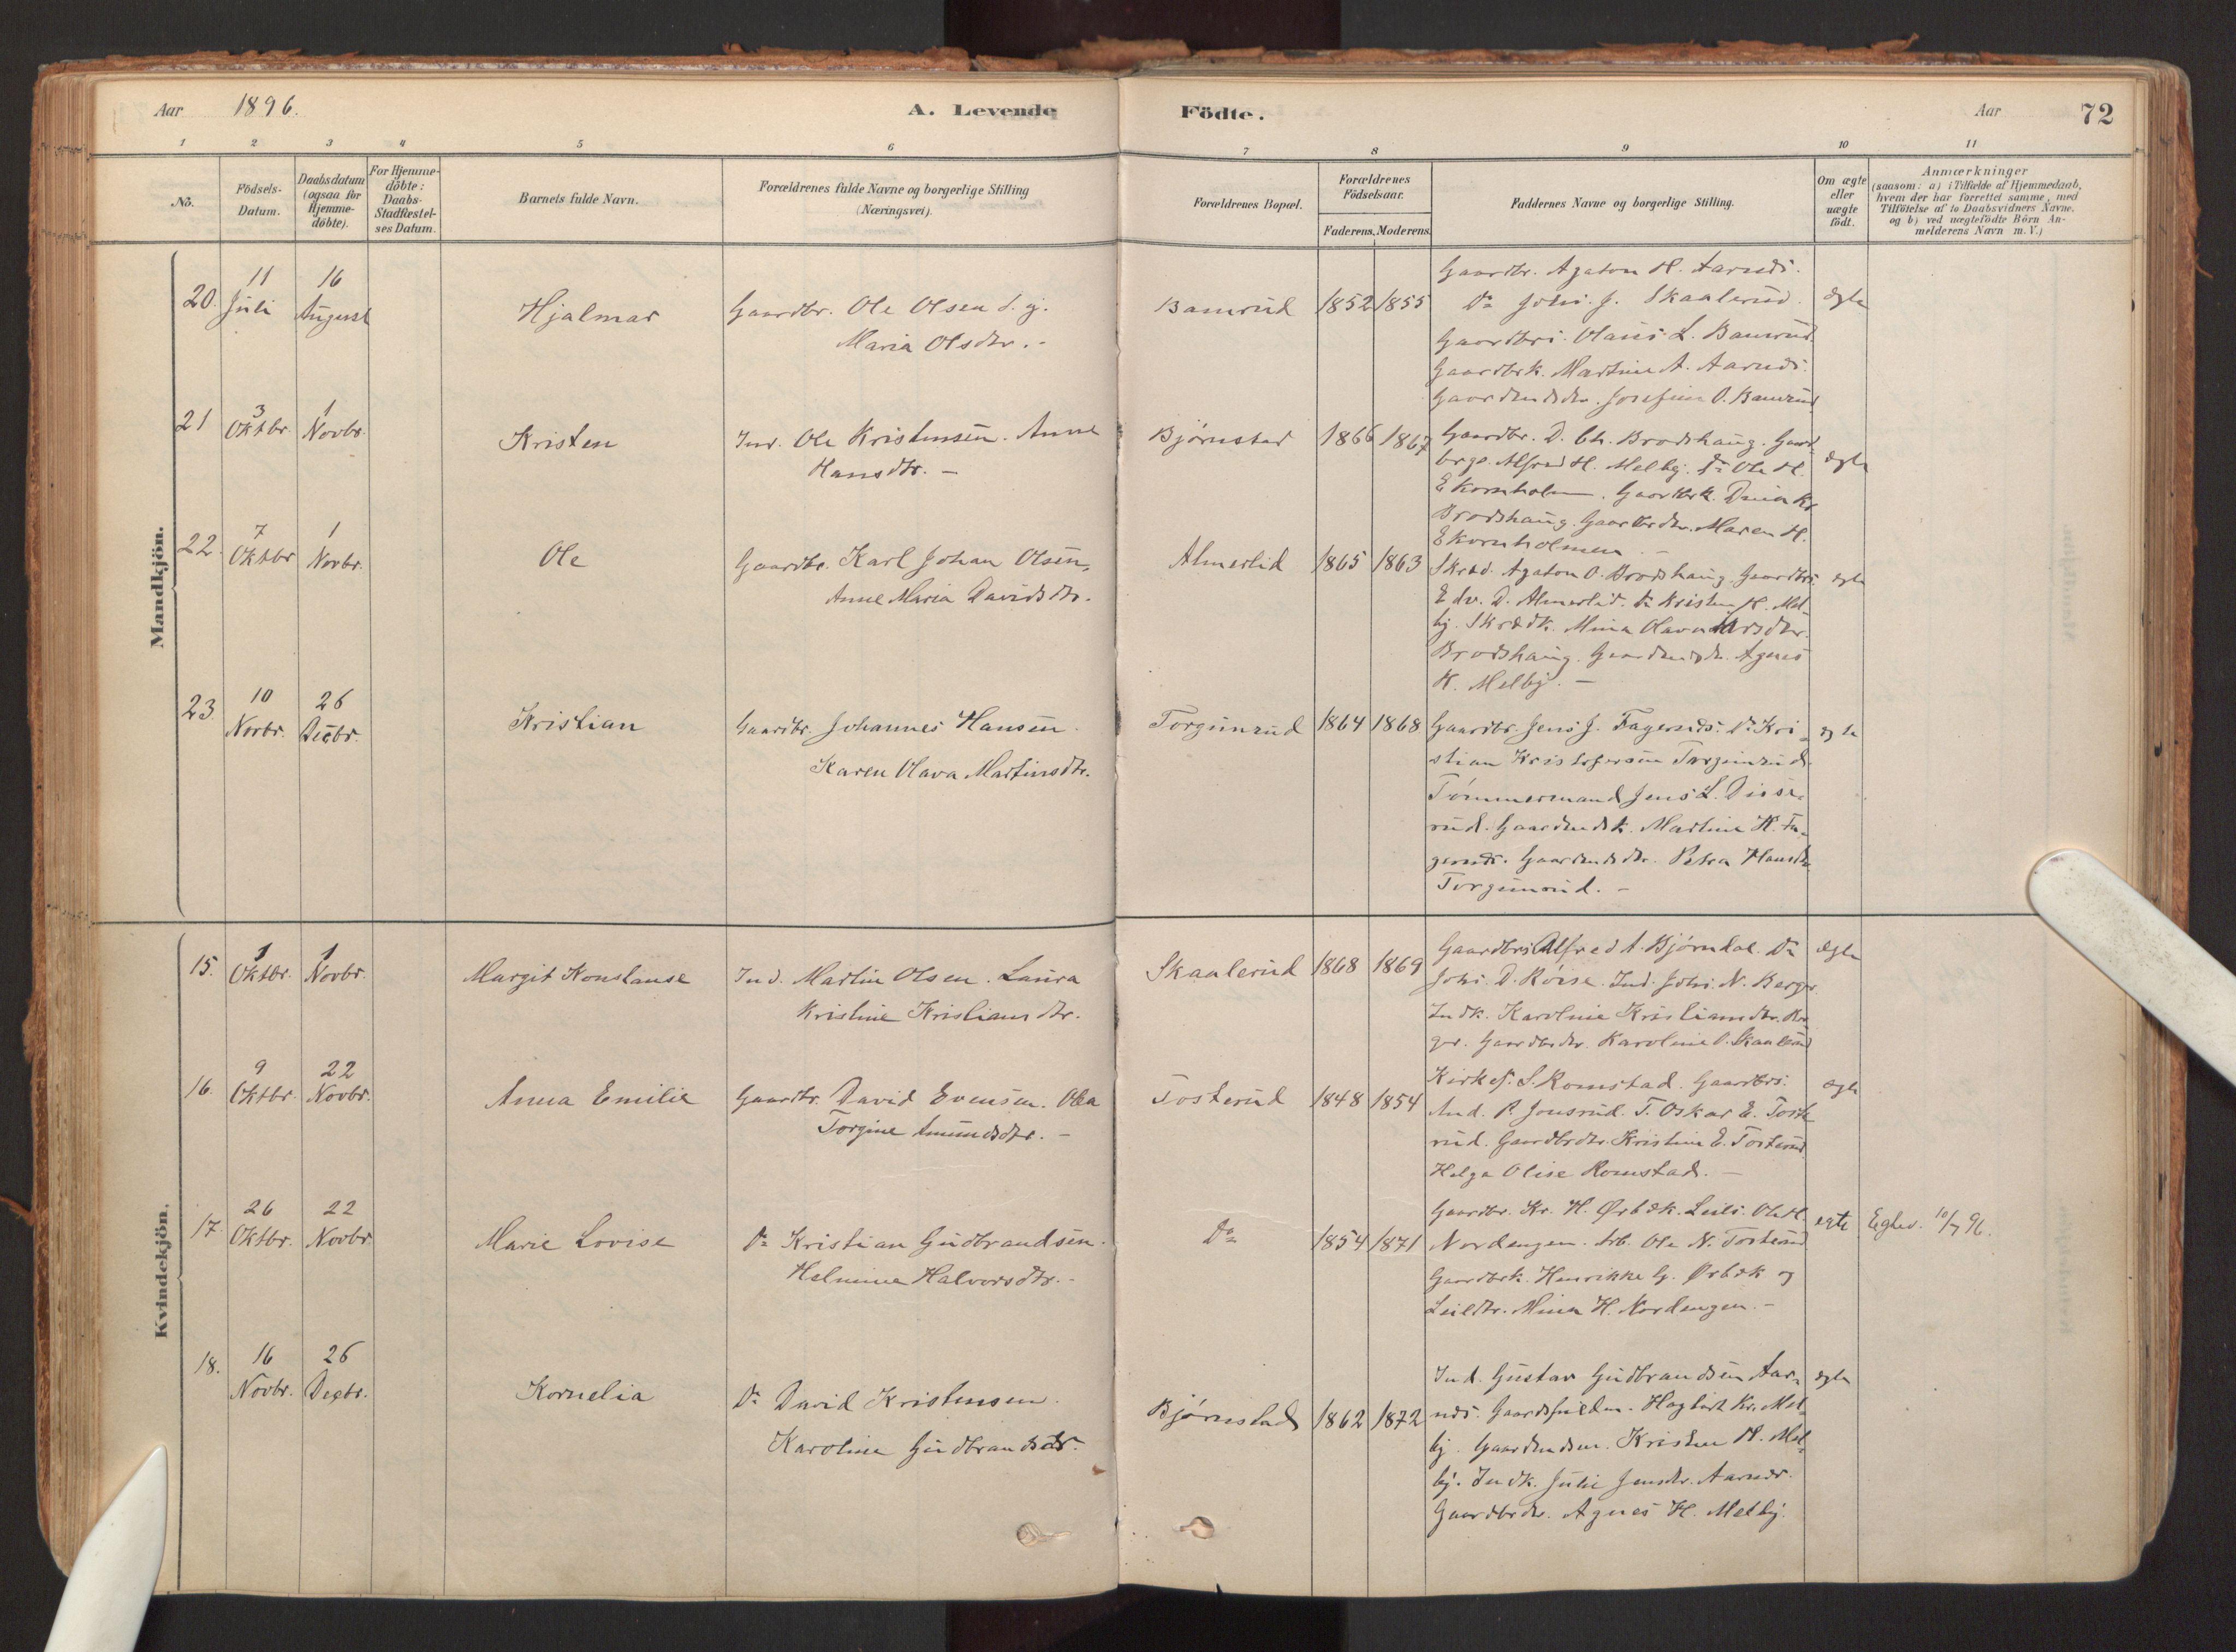 Aar 1896. A. Levende Födte. Aar 72
1 2 3 4 5 6 7 8 9 10 11
No. Födsels-Datum. Daabsdatum (ogsaa for Hjemme-döbte). For Hjemme-döbte: Daabs-Stadfæstel-ses Datum. Barnets fulde Navn. Forældrenes fulde Navne og borgerlige Stilling (Næringsvei). Forældrenes Bopæl. Forældrenes Födselsaar. Faderens. Moderens. Faddernes Navne og borgerlige Stilling. Om ægte eller uægte födt. Anmærkninger
(saasom: a) i Tilfælde af Hjemmedaab, hvem der har forrettet samme, med Tilföielse af to Daabsvidners Navne, og b) ved uægtefödte Börn Anmelderens Navn m. V.)
Mandkjön.
20. 11 Juli 16 August Hjalmar Gaardbr. Ole Olsen d. y.
Maria Olsdtr. -
Bamrud 1852 1855 ægte
Gaardbr. Agaton H. Aarnds.
Do Johs. J. Skaalerud.
Gaardbrs. Olaus L. Bamrud.
Gaardbrk. Martine A. Aarnds.
Josefine O. Bamrud
21 3 Oktbr. 1 Novbr. Kristen Ind. Ole Kristensen. Anne
Hansdtr. -
Bjørnstad 1866 1867 ægte
Gaardbr. D. Ch. Brodshaug. Gaard-
Alfred H. Melby. Do Ole H.
Ekornholm. Gaardbrk.
Brodshaug. Gaardbrdtr. Maren H.
Ekornholmen. -
22. 7 Oktbr 1 Novbr. Ole Gaardbr. Karl Johan Olsen,
Anne Maria Davidsdtr.
Almerlid 1865 1863 ægte
Skræd. Agaton O. Brodshaug. Gaardbrs.
Edv. D. Almerlid. Do Kristen H. Mel-
by. Skrædk. Mina Olava Larsdtr.
Brodshaug. Agnes
H. Melby. -
23. 10 Novbr. 26 Decbr. Kristian Gaardbr. Johannes Hansen.
Karen Olava Martinsdtr.
Torgunrud 1864 1868 ægte
Gaardbr. Jens J. Fagernds. Do Kri-
stian Kristofersen Torgunrud.
Tømmermand Jens L. Disse-
rud. Martine H. Fa-
gernds. Petra Hansdtr.
Torgunrud. -
Kvindekjön.
15. 1 Oktbr. 1 Novbr. Margit Konstanse Ind. Martin Olsen. Laura
Kristine Kristiansdtr.
Skaalerud 1868 1869 ægte
Gaardbrs. Alfred A. Bjørndal. Do
Johs. D. Røise. Ind. Johs. N. Berger.
Indk. Karoline Kristiansdtr. Ber-
ger. Gaardbrdtr. Karoline O. Skaalerud
16. 9 Oktbr. 22 Novbr. Anna Emilie Gaardbr. David Evensen. Olea
Torgine Amundsdtr. -
Tosterud 1848 1854 ægte
Kirkes. S. Romstad. Gaardbrs.
And. P. Jonsrud. T. Oskar E. Toste
rud. Gaardbrdtr. Kristine E. Tosterud
Helga Olise Romstad. -
17. 26 Oktbr. 22 Novbr. Marie Lovise Do Kristian Gudbrandsen.
Helmine Halvorsdtr. -
Do 1854 1871 egte Eghed. 10/7 96.
Gaardbr. Kr. H. Ørbæk. Leils. Ole H.
Nordengen. Arb. Ole N. Tosterud
Gaardbrk. Henrikke G. Ørbæk og
Leildtr. Mina H. Nordengen. -
18. 16 Novbr. 26 Decbr. Kornelia Do David Kristensen.
Karoline Gudbrandsdtr.
Bjørnstad 1862 1872 ægte
Ind. Gustav Gudbrandsen Aar-
nds. Hagbart Kr. Mel-
by. Kristen H. Mel-
by. Indk. Julie Jensdtr. Aarnds.
Gaardbrdtr. Agnes H. Melby.